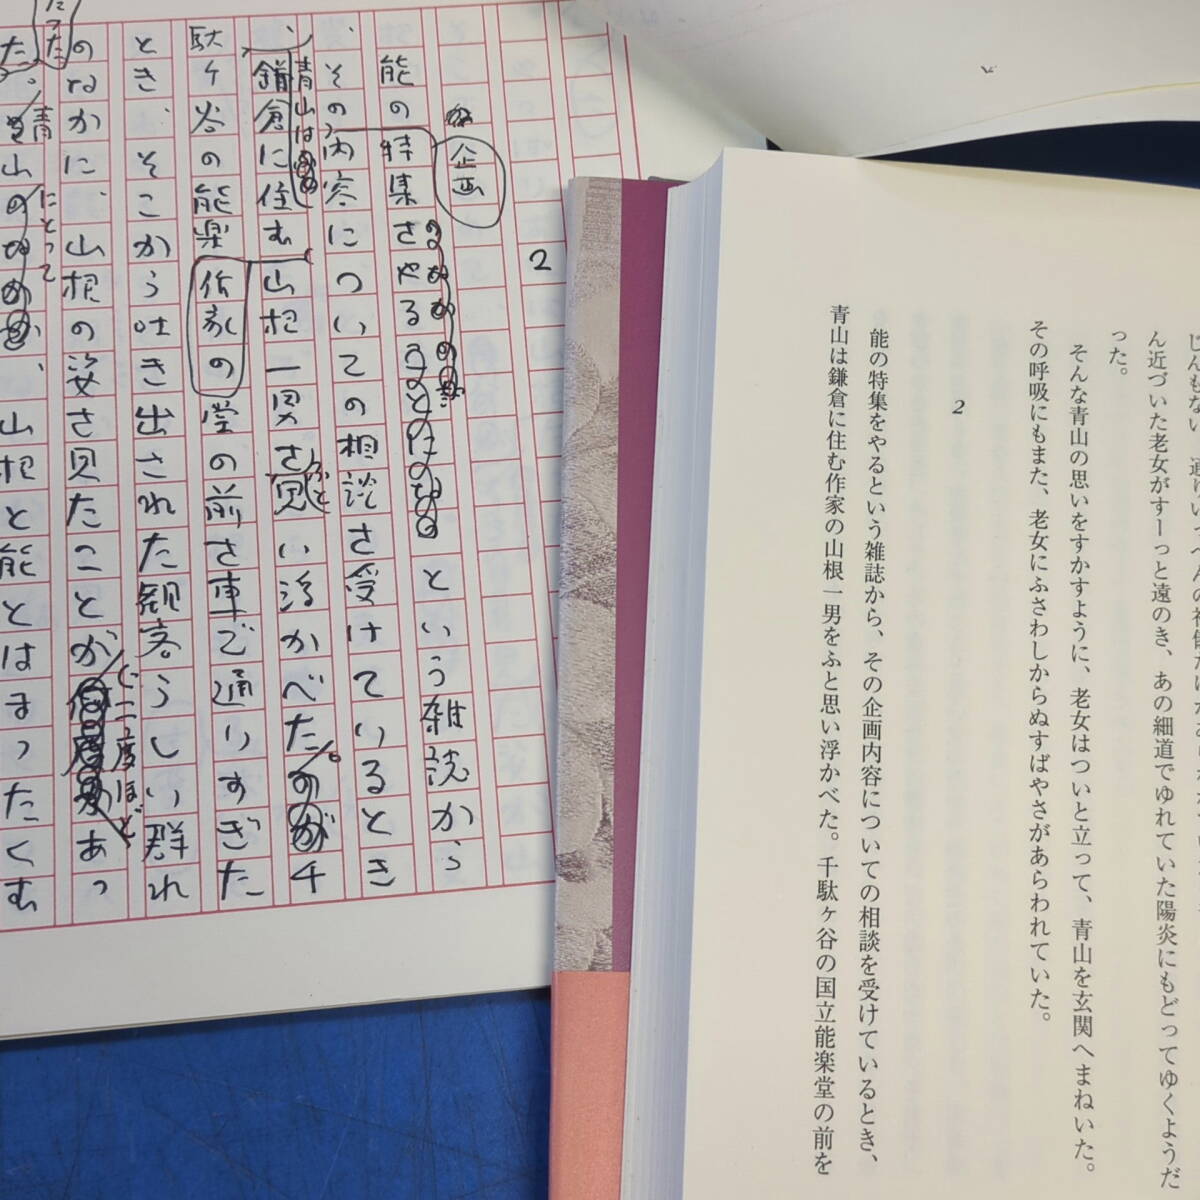 2
能の特集をやるという雑誌から
その内容についての相談を受けているとき
企画
、青山は
鎌倉に住む山根一男を思い浮かべた。千
ふと
作家の
駄ヶ谷の能楽堂の前を車で通りすぎた
とき、そこから吐き出された観客らしい群れ
のなかに、山根の姿を見たことが
二度ほど
あっ
た。青山
にとって
、山根と能とはまったくむ
ん近づいた老女がすーっと遠のき、あの細道でゆれていた陽炎にもどってゆくようだ
った。
そんな青山の思いをすかすように、老女はついと立って、青山を玄関へまねいた。
その呼吸にもまた、老女にふさわしからぬすばやさがあらわれていた。
2
能の特集をやるという雑誌から、その企画内容についての相談を受けているとき、
青山は鎌倉に住む作家の山根一男をふと思い浮かべた。千駄ヶ谷の国立能楽堂の前を